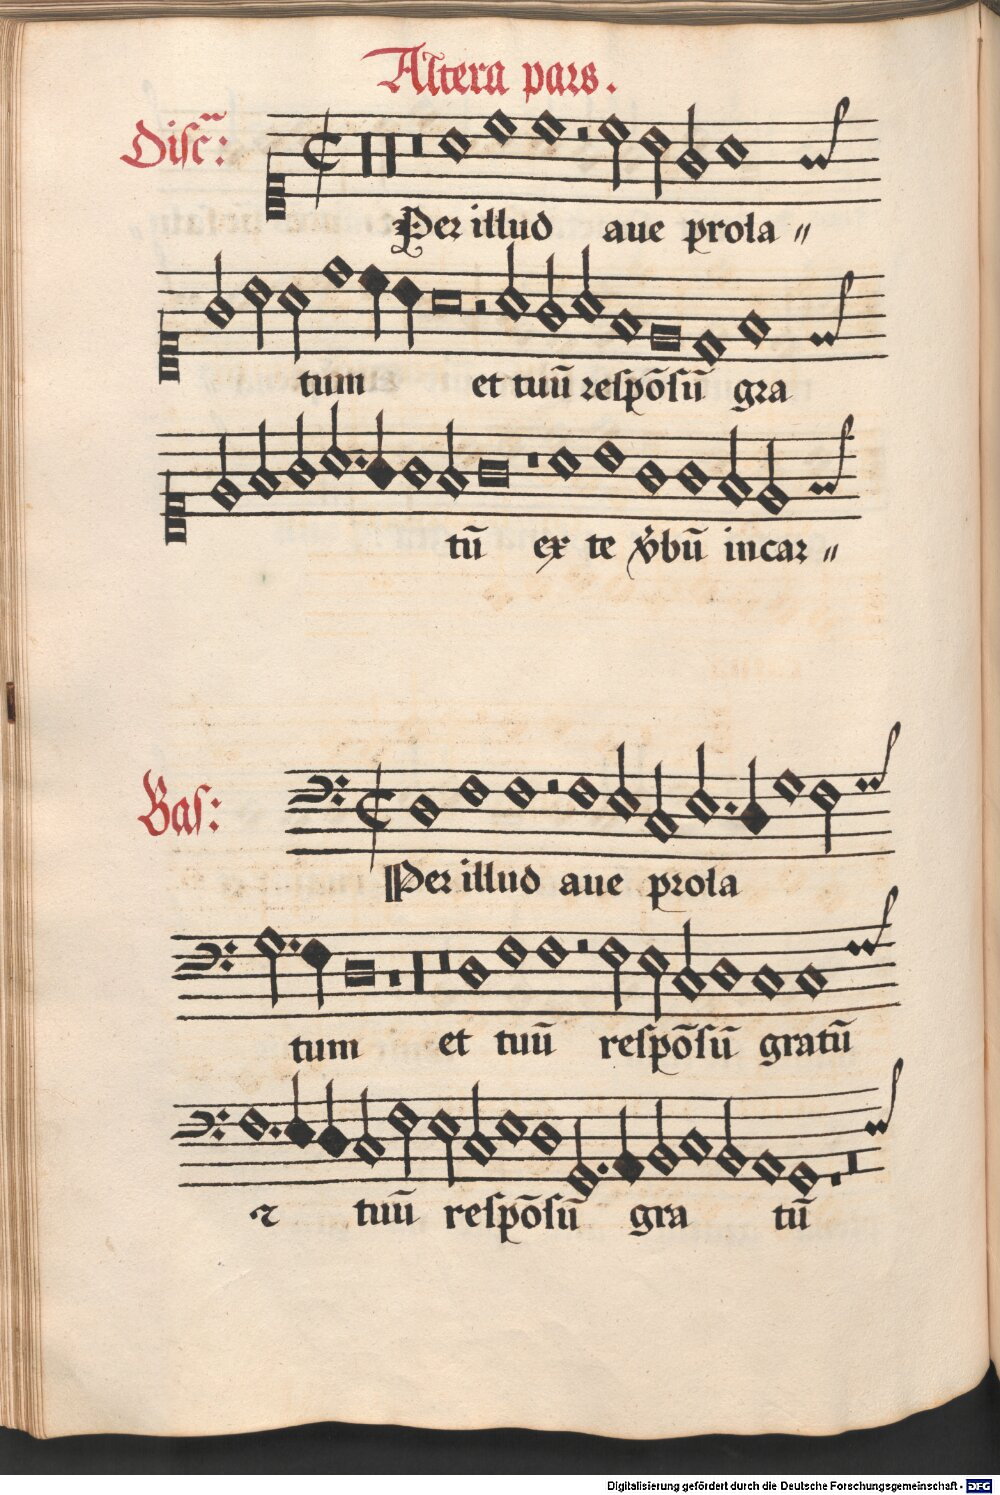 Altera pars.
Disc̄:
Per illud aue prola〃
tum et tuū respōsū gra
tū ex te v̓bū incar〃
Bas:
Per illud aue prola
tum et tuū respōsū gratū
⁊ tuū respōsū gra tū
Digitalisierung gefördert durch die Deutsche Forschungsgemeinschaft - DFG